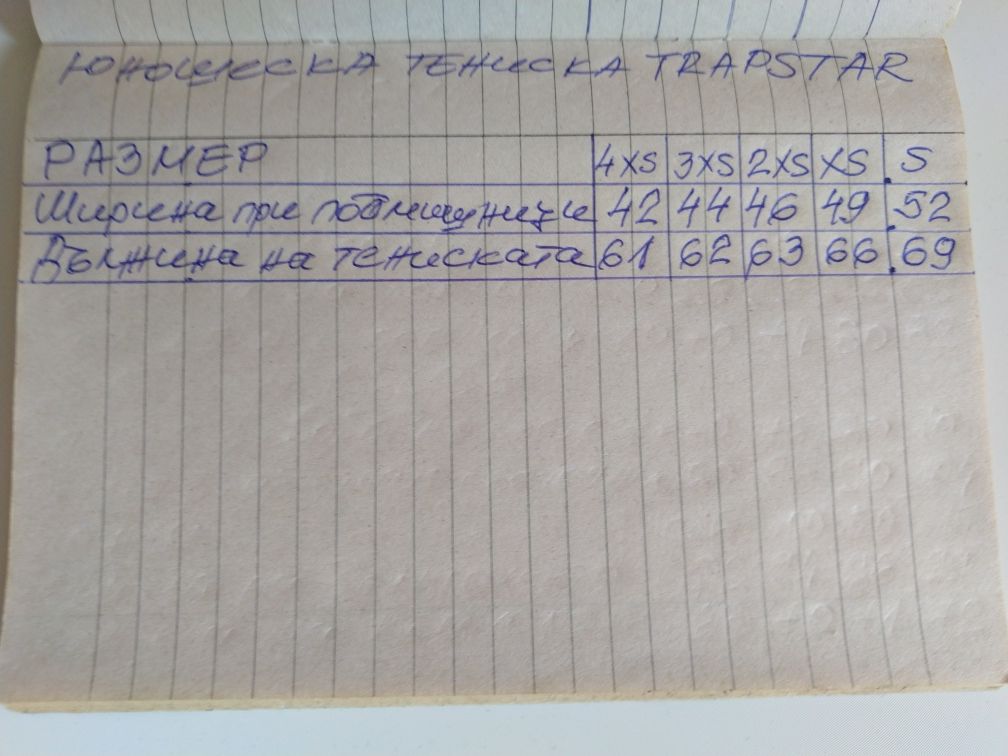 ЮНОШЕСКА ТЕНИСКА TRAPSTAR
РАЗМЕР 4XS 3XS 2XS XS S
Ширина при подмишници 42 44 46 49 52
Дължина на тениската 61 62 63 66 69